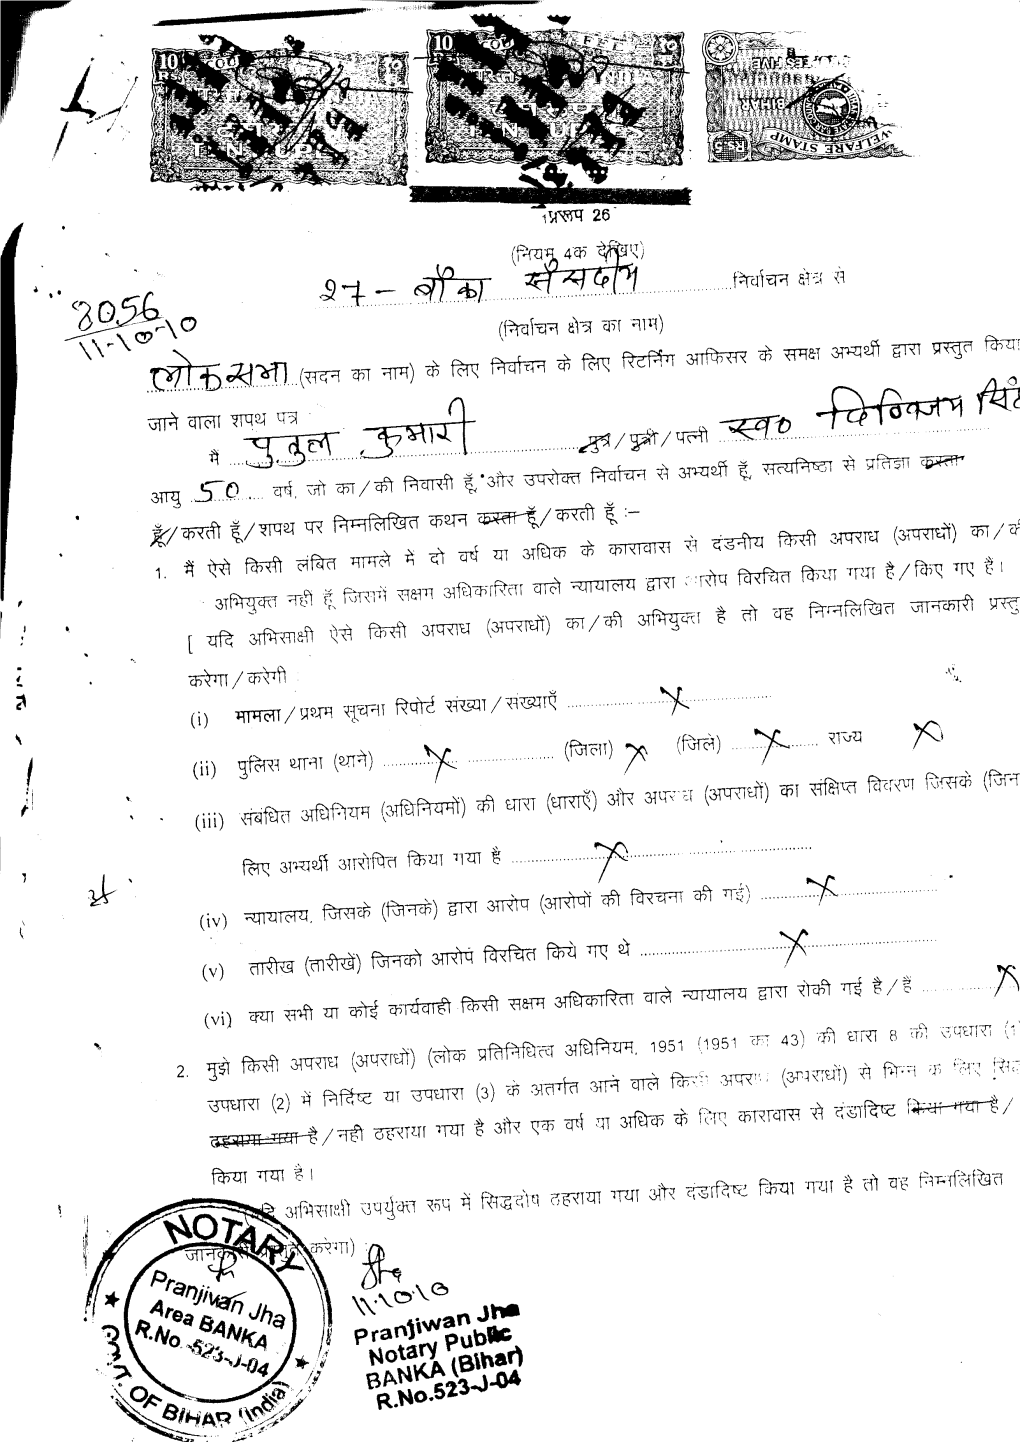 10
10
RUPEES FIVE
BIHAR
WELFARE STAMP
प्ररूप 26
(नियम 4क देखिए)
27 - बाँका संसदीय निर्वाचन क्षेत्र से
(निर्वाचन क्षेत्र का नाम)
8056
11-10-10
लोकसभा (सदन का नाम) के लिए निर्वाचन के लिए रिटर्निंग आफिसर के समक्ष अभ्यर्थी द्वारा प्रस्तुत किया
जाने वाला शपथ पत्र
मैं पुतुल कुमारी पुत्र/पुत्री/पत्नी स्व० दिग्विजय सिंह
आयु 50 वर्ष, जो का/की निवासी हूँ, और उपरोक्त निर्वाचन से अभ्यर्थी हूँ, सत्यनिष्ठा से प्रतिज्ञा करता
हूँ/करती हूँ/शपथ पर निम्नलिखित कथन करता हूँ/करती हूँ :–
1. मैं ऐसे किसी लंबित मामले में दो वर्ष या अधिक के कारावास से दंडनीय किसी अपराध (अपराधों) का/की
अभियुक्त नहीं हूँ जिसमें सक्षम अधिकारिता वाले न्यायालय द्वारा आरोप विरचित किया गया है/किए गए हैं।
[ यदि अभिसाक्षी ऐसे किसी अपराध (अपराधों) का/की अभियुक्त है तो वह निम्नलिखित जानकारी प्रस्तु
करेगा/करेगी :
(i) मामला/प्रथम सूचना रिपोर्ट संख्या/संख्याएँ ............ X ............
(ii) पुलिस थाना (थाने) ............ X ............ (जिला) X (जिले) ............ X ............ राज्य X
(iii) संबंधित अधिनियम (अधिनियमों) की धारा (धाराएँ) और अपराध (अपराधों) का संक्षिप्त विवरण जिसके (जिन
लिए अभ्यर्थी आरोपित किया गया है ............ X ............
(iv) न्यायालय, जिसके (जिनके) द्वारा आरोप (आरोपों की विरचना की गई) ............ X ............
(v) तारीख (तारीखें) जिनको आरोप विरचित किये गए थे ............ X ............
(vi) क्या सभी या कोई कार्यवाही किसी सक्षम अधिकारिता वाले न्यायालय द्वारा रोकी गई है/हैं ............ X
2. मुझे किसी अपराध (अपराधों) (लोक प्रतिनिधित्व अधिनियम, 1951 (1951 का 43) की धारा 8 की उपधारा (1
उपधारा (2) में निर्दिष्ट या उपधारा (3) के अतर्गत आने वाले किसी अपराध (अपराधों) से भिन्न के लिए सिद
ठहराया गया है/नही ठहराया गया है और एक वर्ष या अधिक के लिए कारावास से दंडादिष्ट किया गया है/
किया गया है।
अभिसाक्षी उपर्युक्त रूप में सिद्धदोष ठहराया गया और दंडादिष्ट किया गया है तो वह निम्नलिखित
करेगा)
11.10.10
Pranjiwan Jha
Notary Public
BANKA (Bihar)
R.No.523-J-04
NOTARY
Pranjivan Jha
Area BANKA
R.No.-523-J-04
GOVT. OF BIHAR (India)